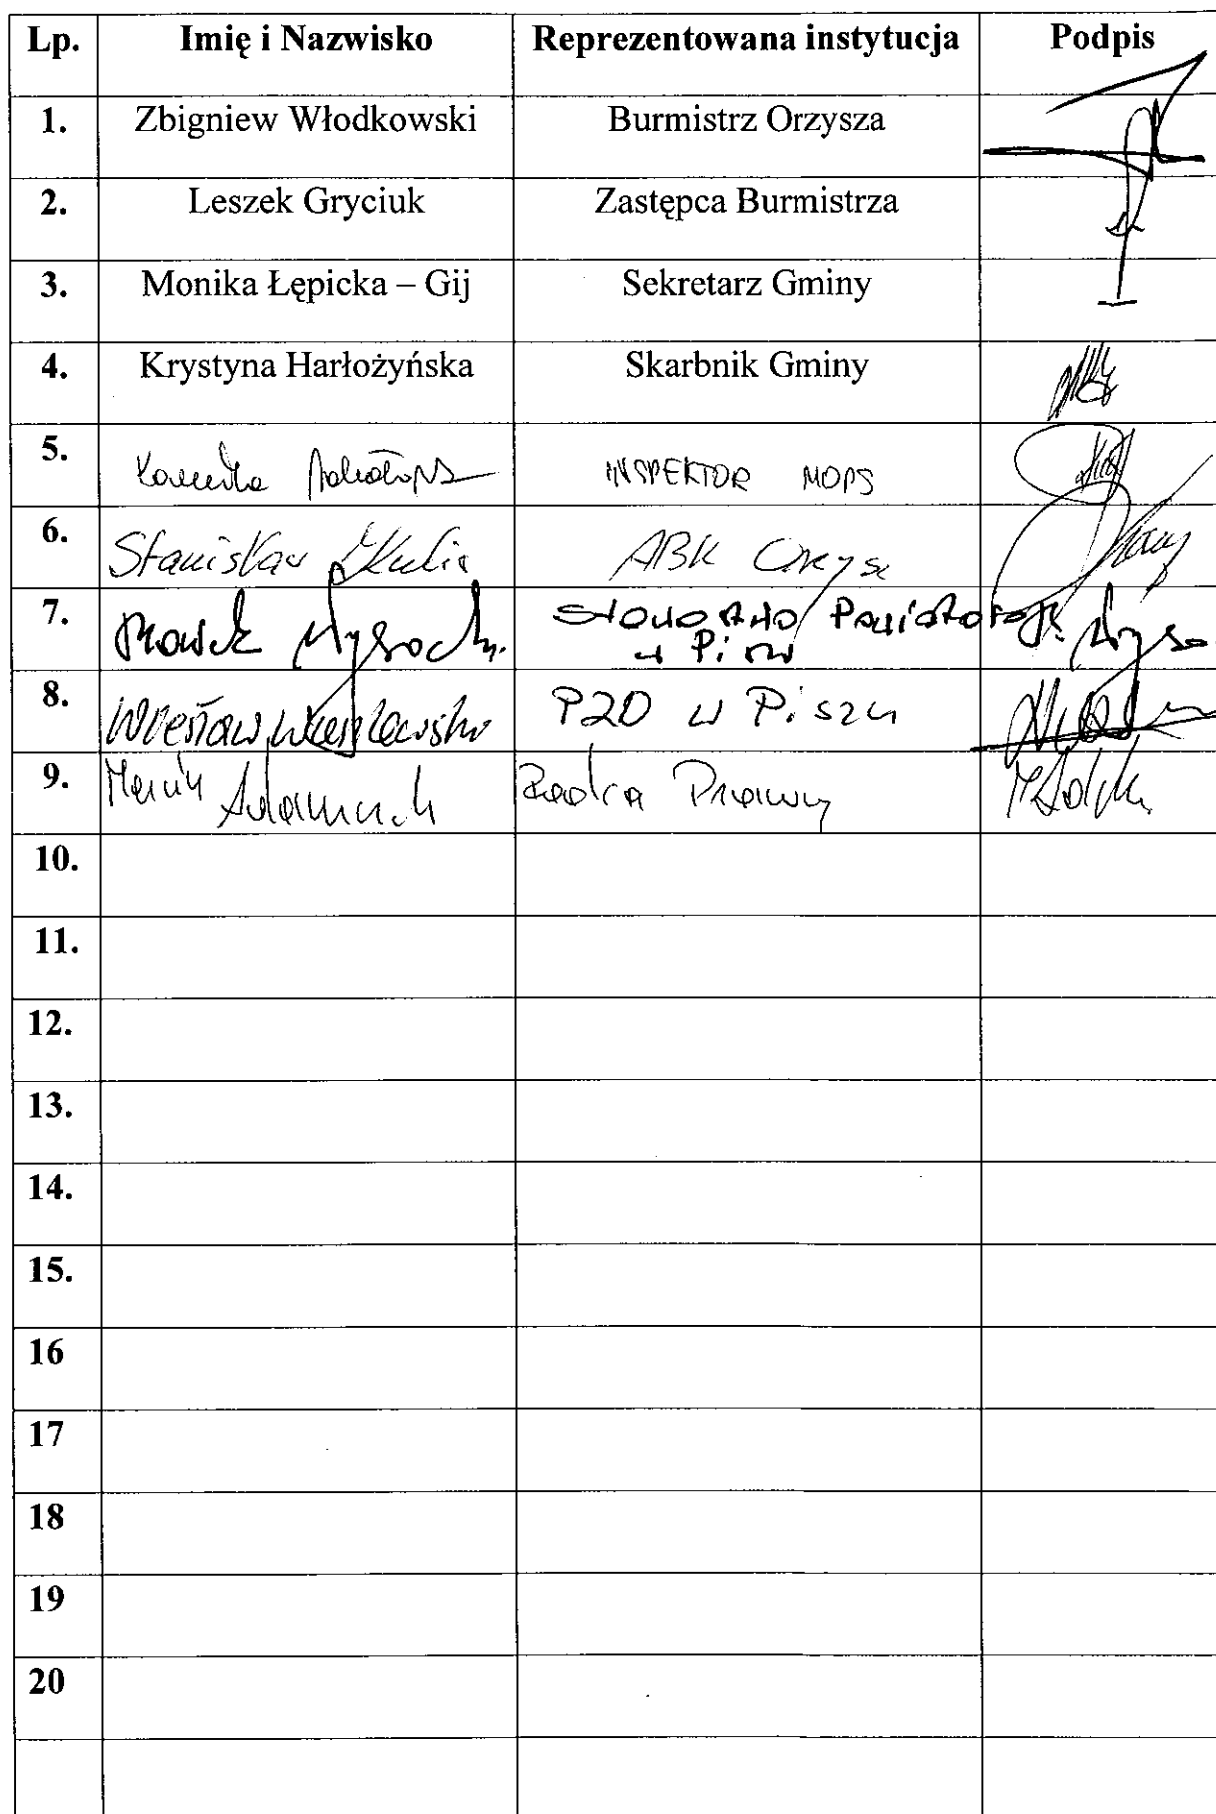 Lp. Imię i Nazwisko Reprezentowana instytucja Podpis
1. Zbigniew Włodkowski Burmistrz Orzysza
2. Leszek Gryciuk Zastępca Burmistrza
3. Monika Łępicka – Gij Sekretarz Gminy
4. Krystyna Harłożyńska Skarbnik Gminy
5. INSPEKTOR MOPS
6. Stanisław ABK Orzysz
7. Marek
w Piszu
8. Wiesław PZD w Piszu
9. Radca Prawny
10.
11.
12.
13.
14.
15.
16
17
18
19
20